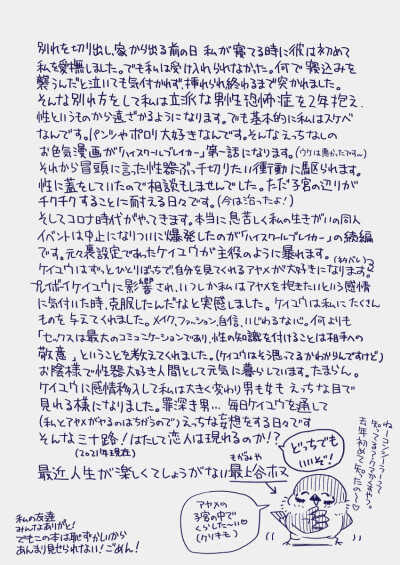 別れを切り出し、家から出る前の日 私が寝てる時に彼は初めて
私を愛撫しました。でも私は受け入れられなかった。何で寝込みを
襲うんだと泣いても気付かれず、挿れられ終わるまで突かれました。
そんな別れ方をして私は立派な男性恐怖症を2年抱え、
性というものから遠ざかるようになります。でも基本的に私はスケベ
なんです。パンツやポロリ大好きなんです。そんなえちなしの
お色気漫画が「ハイスクールブレイカー」第一話になります。(ウケは悪かったです〜)
それから冒頭に言った性器ぶっ千切りたい衝動に駆られます。
性に蓋をしていたので相談もしませんでした。ただ子宮の辺りが
チクチクすることに耐える日々です。(今はご治ったよ!)
そしてコロナ時代がやってきます。本当に息苦しく私の生きがいの同人
イベントは中止になりついに爆発したのが「ハイスクールブレイカー」の続編
です。元々裏設定であったケイユウが主役のように暴れます。(ネタバレ)
ケイユウはずっとひとりぼっちで自分を見てくれるアヤメが大好きになります。
プレイボーイケイユウに影響され、いつしか私はアヤメを抱きたいという感情
に気付いた時、克服したんだなと実感しました。ケイユウは私にたくさん
ものを与えてくれました。メイク、ファッション、自信、いじわるな心。何よりも
「セックスは最大のコミュニケーションであり、性の知識を付けることは相手への
敬意」ということを教えてくれました。(ケイユウはそう思ってるかわかんですけど)
お陰様で性器大好き人間として元気に暮らしています。たまらん。
ケイユウに感情移入して私は大きく変わり男も女も えっちな目で
見れる様になりました。罪深き男… 毎日ケイユウを通して
(私とアヤメがやるのはちがうので)えっちな妄想をする日々です
そんな三十路!はたして恋人は現れるのか!?
(2021年現在)
どっちでも
いいぞ!
最近人生が楽しくてしょうがない最上谷ホマ
もがみや
ねーコンシーラーって
知ってる?クマかくせるやつ。
去年初めて知ったの〜♡
アヤメの
子宮の中で
くらした〜い♡
(クリキモ)
私の友達
みんなありがと!
でもこの本は恥ずかしいから
あんまり見せられない!ごめん!